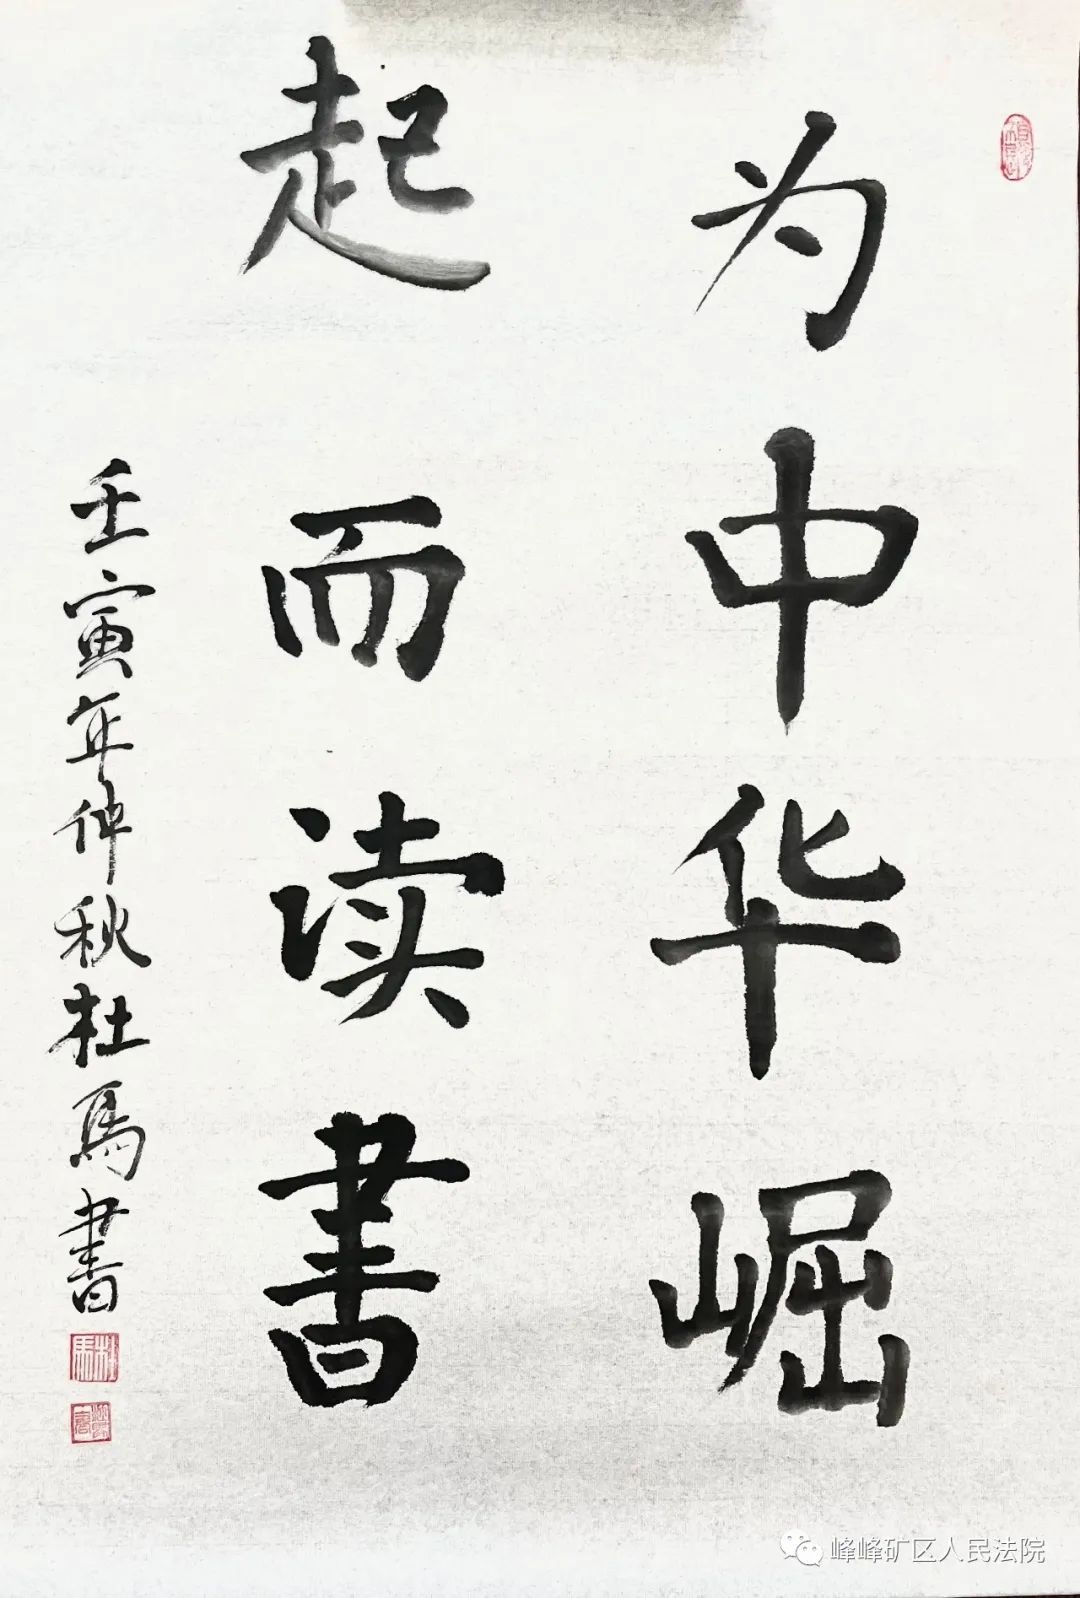 为中华崛
起而读書
壬寅年仲秋杜馬書
杜馬
峰峰矿区人民法院